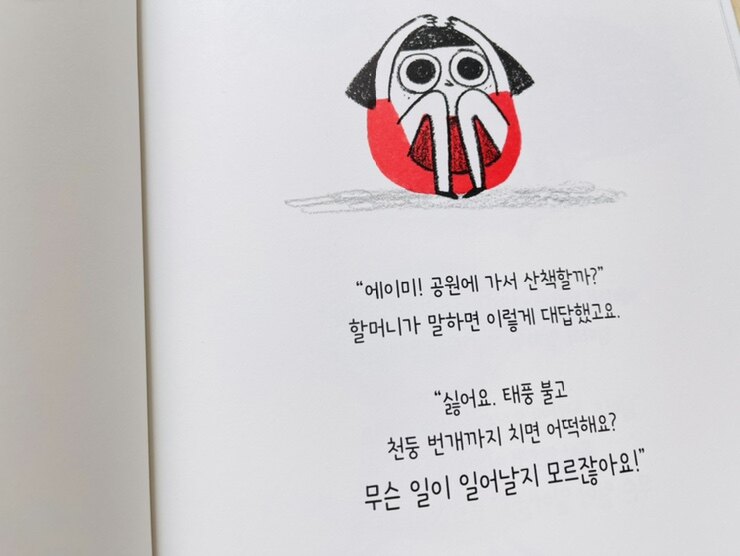 “에이미! 공원에 가서 산책할까?”
할머니가 말하면 이렇게 대답했고요.
“싫어요. 태풍 불고
천둥 번개까지 치면 어떡해요?
무슨 일이 일어날지 모르잖아요!”